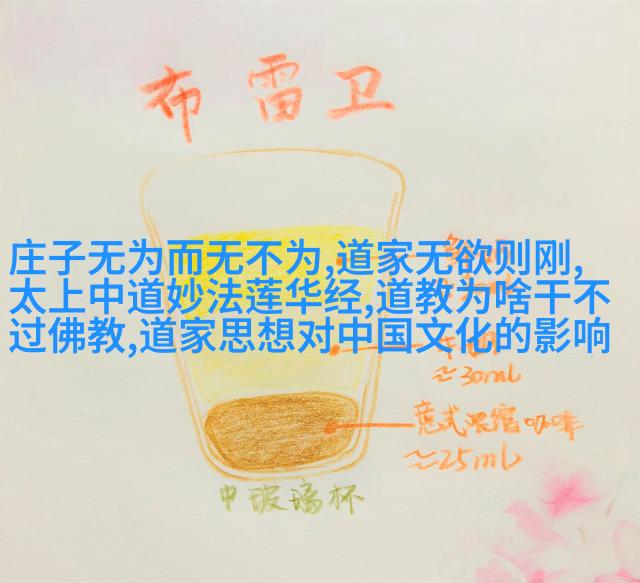 布雷卫
庄子无为而无不为,道家无欲则刚,
太上中道妙法莲华经,道教为啥干不
过佛教,道家思想对中国文化的影响
≈30ml
意式浓缩咖啡
≈25ml
中玻璃杯